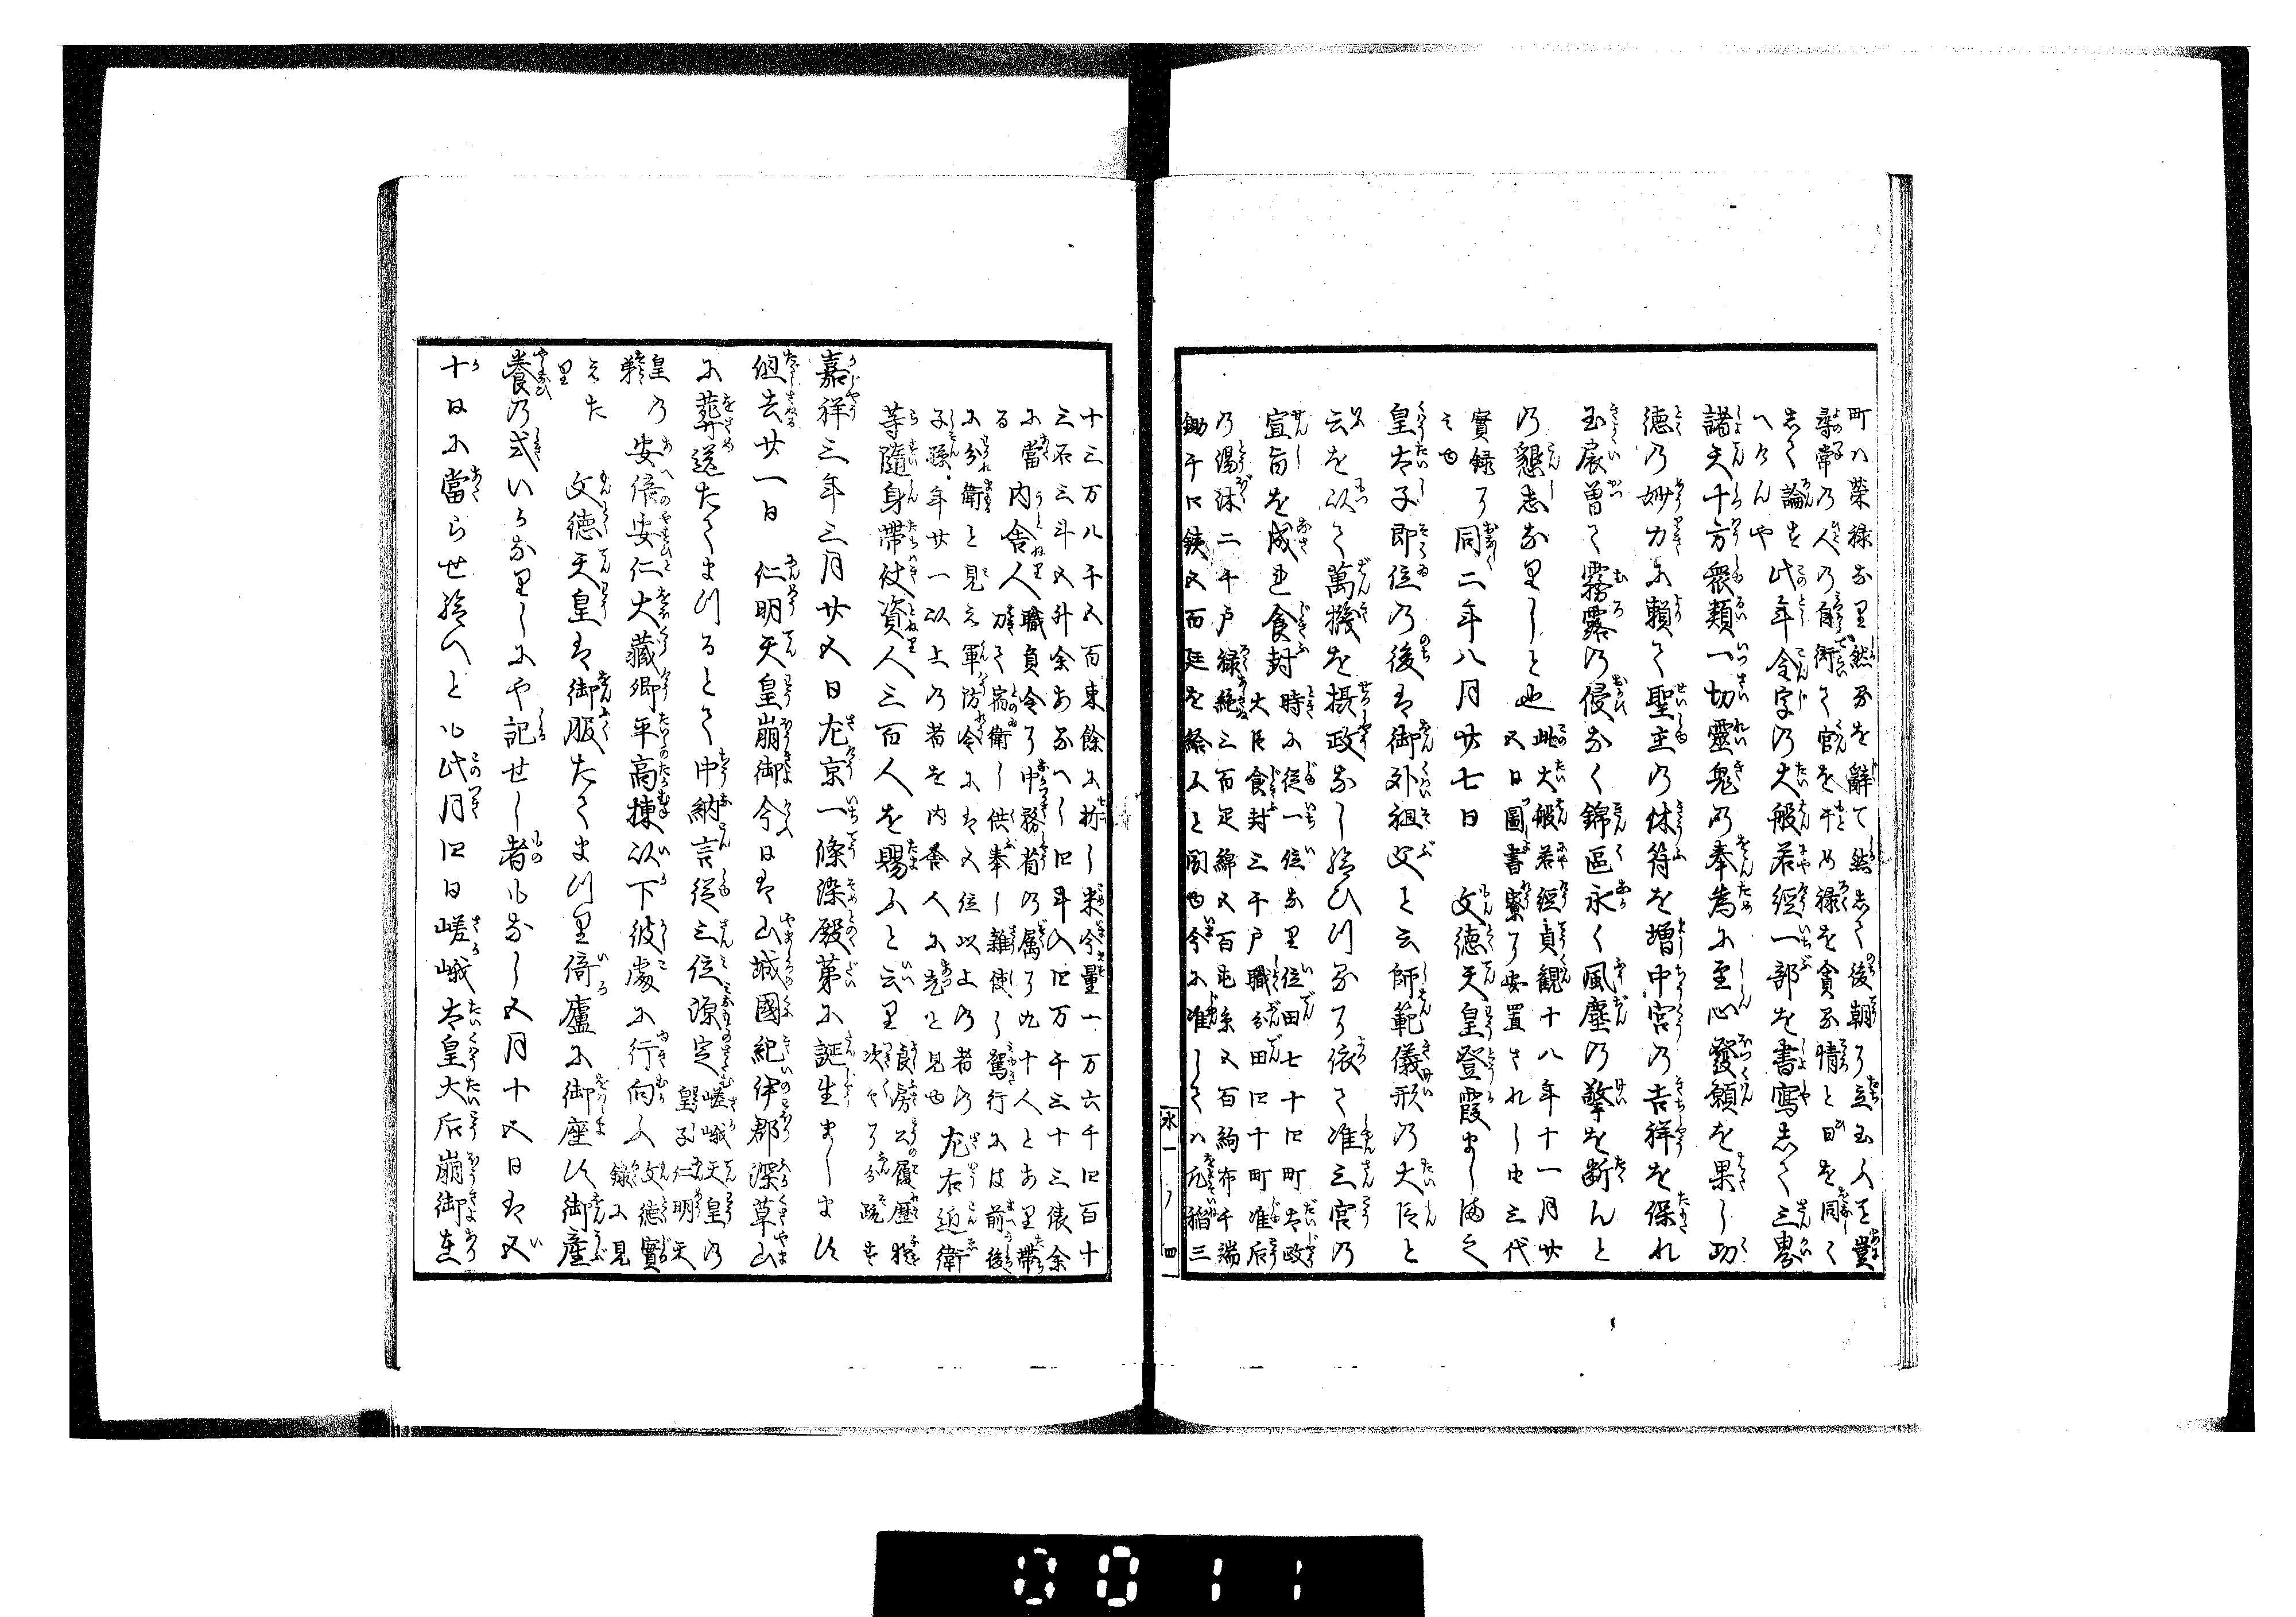 町ハ榮禄なり然るを辭て然して後朝に立玉ふを豈
尋常の人の能術て官を牟め禄を貪る情と日を同く
して論を
へけんや此年金字の大般若經一部を書寫して三界
諸天十方衆類一切靈鬼の奉爲に至心發願を果し功
徳の妙力に頼て聖主の休符を增中宮の吉祥を保れ
玉扆曽て霧露の侵なく錦區永く風塵の擎を断んと
の懇志なりしと也此大般若經貞観十八年十一月廿
五日圖書寮に安置されし由三代
實録に
見ゆ同二年八月廿七日文徳天皇登霞まし満之
皇太子即位の後は御外祖父と云師範儀形の大臣と
云を以て萬機を摂政し給ひけるに依て准三宮の
宣旨を成は食封時に従一位なり位田七十四町太政
大臣食封三千戸職分田四十町准后
の湯沐二千戸禄絁三百疋綿五百屯糸五百絇布千端
鋤千口鉄五百廷を給ふと聞ゆ今に准しては瓦稲三
十三万八千五百束餘に折し米今量一万六千四百十
三石三斗五升余あるへし四斗入四万千三十三俵余
に當る内舎人職員令に中務省の属に九十人とあり帯
刀て宿衛し供奉し雜使に駕行には前後
に分衛と見え軍防令には五位以上の者の
子孫年廿一以上の者を内舎人に充と見ゆ左右近衛
等隨身帶仗資人三百人を賜ふと云り良房公の履歴猶
次々に分疏す
嘉祥三年三月廿五日左京一條染殿第に誕生まします
但去廿一日仁明天皇崩御今日は山城國紀伊郡深草山
に葬送たてまつるとて中納言従三位源定嵯峨天皇の
皇子仁明天
皇の
弟安倍安仁大藏卿平高棟以下彼處に行向ふ文徳實
録に見
えた
里文徳天皇は御服たてまつり倚廬に御座は御產
養の式いかなりしにや記せし者もなし五月十五日は五
十日に當らせ給へとも此月四日嵯峨太皇大后崩御在
永一ノ 四
0011